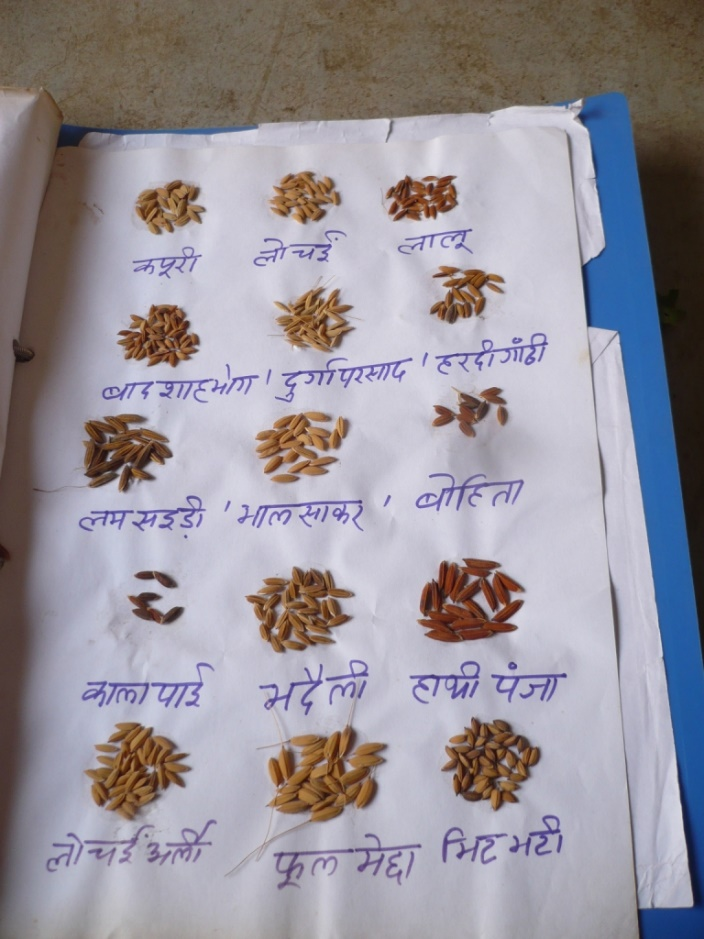 कपूरी लोचई लालू
बादशाहभोग ' दुर्गापरसाद ' हरदीगाँठी
लमसइड़ी ' भालसाकर ' बोहिता
कालापाई भदैली हाथी पंजा
लोचई अर्ली फूल मेद्दा भिटभटी